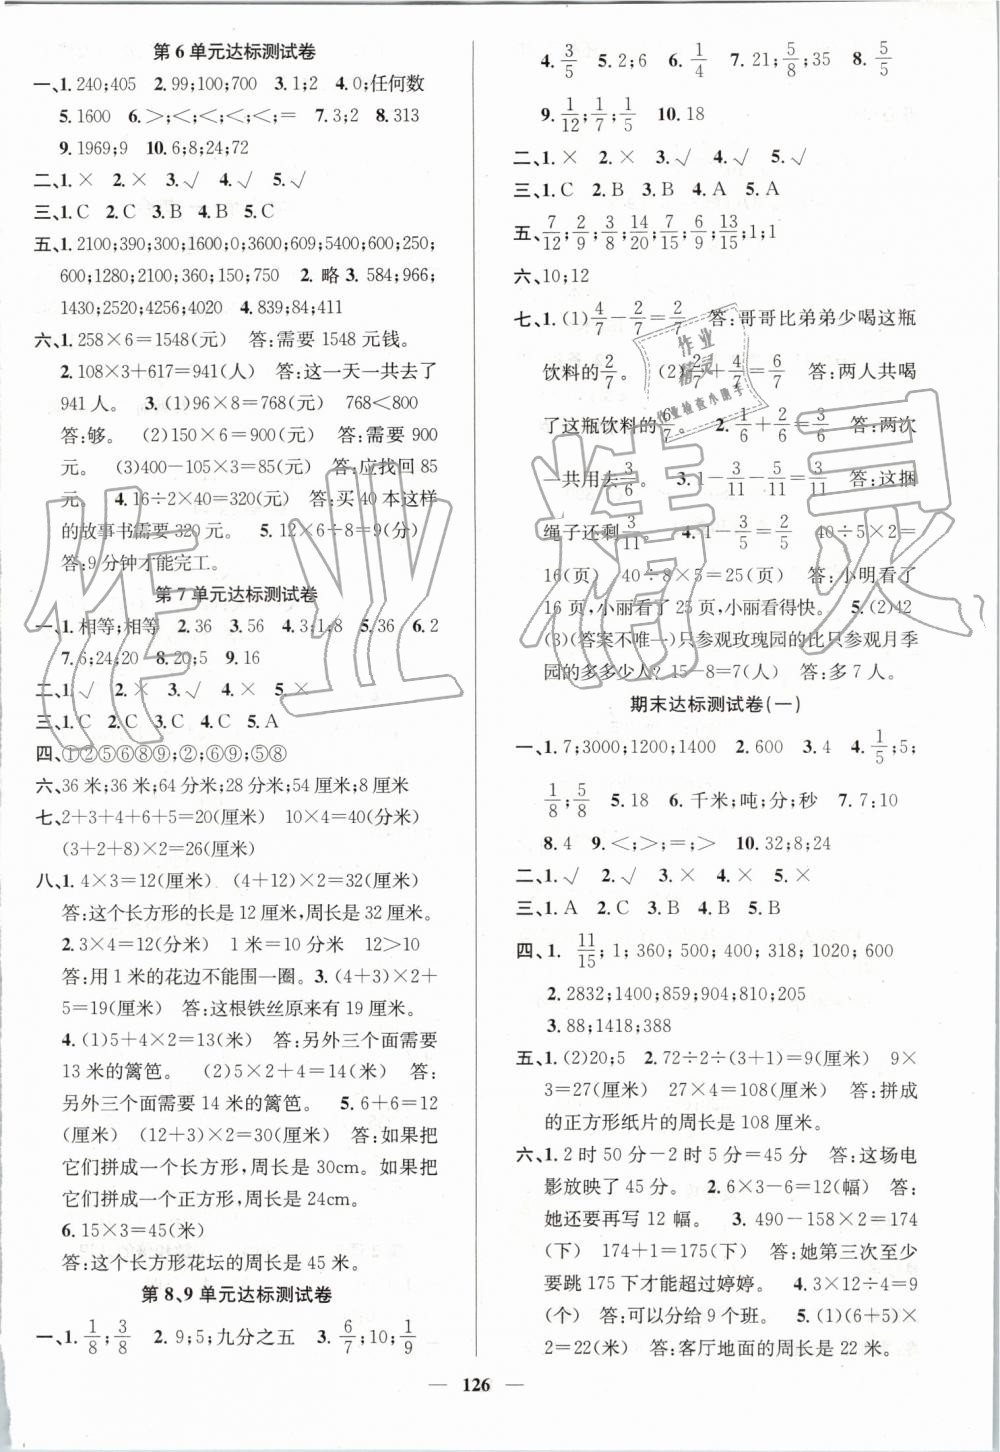 第6单元达标测试卷
一、1. 240;405 2. 99;100;700 3. 1;2 4. 0;任何数
5. 1600 6. >;<;<;<;<;= 7. 3;2 8. 313
9. 1969;9 10. 6;8;24;72
二、1. × 2. × 3. √ 4. √ 5. √
三、1. C 2. C 3. B 4. B 5. C
五、1. 2100;390;300;1600;0;3600;609;5400;600;250;
600;1280;2100;360;150;750 2. 略 3. 584;966;
1430;2520;4256;4020 4. 839;84;411
六、1. 258×6=1548(元) 答:需要 1548 元钱。
2. 108×3+617=941(人) 答:这一天一共去了
941人。 3. (1)96×8=768(元) 768<800
答:够。 (2)150×6=900(元) 答:需要 900
元。 (3)400-105×3=85(元) 答:应找回 85
元。 4. 16÷2×40=320(元) 答:买 40 本这样
的故事书需要 320 元。 5. 12×6÷8=9(分)
答:9 分钟才能完工。
第7单元达标测试卷
一、1. 相等;相等 2. 36 3. 56 4. 3;1;8 5. 36 6. 2
7. 6;24;20 8. 20;5 9. 16
二、1. √ 2. × 3. √ 4. × 5. ×
三、1. C 2. B 3. C 4. C 5. A
四、①②⑤⑥⑧⑨;②;⑥⑨;⑤⑧
六、36 米;36 米;64 分米;28 分米;54 厘米;8 厘米
七、2+3+4+6+5=20(厘米) 10×4=40(分米)
(3+2+8)×2=26(厘米)
八、1. 4×3=12(厘米) (4+12)×2=32(厘米)
答:这个长方形的长是 12 厘米,周长是 32 厘米。
2. 3×4=12(分米) 1 米=10 分米 12>10
答:用 1 米的花边不能围一圈。3. (4+3)×2+
5=19(厘米) 答:这根铁丝原来有 19 厘米。
4. (1)5+4×2=13(米) 答:另外三个面需要
13 米的篱笆。 (2)5×2+4=14(米) 答:
另外三个面需要 14 米的篱笆。 5. 6+6=12
(厘米) (12+3)×2=30(厘米) 答:如果把
它们拼成一个长方形,周长是 30cm。如果把
它们拼成一个正方形,周长是 24cm。
6. 15×3=45(米)
答:这个长方形花坛的周长是 45 米。
第8、9单元达标测试卷
一、1. 1/8;3/8 2. 9;5;九分之五 3. 6/7;10;1/9
4. 3/5 5. 2;6 6. 1/4 7. 21;5/8;35 8. 5/5
9. 1/12;1/7;1/5 10. 18
二、1. × 2. × 3. √ 4. √ 5. √
三、1. C 2. B 3. B 4. A 5. A
五、7/12;2/9;3/8;14/20;7/15;6/9;13/15;1;1
六、10;12
七、1. (1)4/7-2/7=2/7 答:哥哥比弟弟少喝这瓶
饮料的2/7。 (2)2/7+4/7=6/7 答:两人共喝
了这瓶饮料的6/7。 2. 1/6+2/6=3/6 答:两次
一共用去3/6。 3. 1-3/11-5/11=3/11 答:这捆
绳子还剩3/11。 4. 1-3/5=2/5 40÷5×2=
16(页) 40÷8×5=25(页) 答:小明看了
16 页,小丽看了 25 页,小丽看得快。 5. (2)42
(3)(答案不唯一)只参观玫瑰园的比只参观月季
园的多多少人? 15-8=7(人) 答:多 7 人。
期末达标测试卷(一)
一、1. 7;3000;1200;1400 2. 600 3. 4 4. 1/5;5;
1/8;5/8 5. 18 6. 千米;吨;分;秒 7. 7:10
8. 4 9. <;>;=;> 10. 32;8;24
二、1. √ 2. √ 3. × 4. × 5. ×
三、1. A 2. B 3. B 4. B 5. B
四、1. 11/15;1;360;500;400;318;1020;600
2. 2832;1400;859;904;810;205
3. 88;1418;388
五、1. (2)20;5 2. 72÷2÷(3+1)=9(厘米) 9×
3=27(厘米) 27×4=108(厘米) 答:拼成
的正方形纸片的周长是 108 厘米。
六、1. 2 时 50 分-2 时 5 分=45 分 答:这场电
影放映了 45 分。 2. 6×3-6=12(幅) 答:
她还要再写 12 幅。 3. 490-158×2=174
(下) 174+1=175(下) 答:她第三次至少
要跳 175 下才能超过婷婷。 4. 3×12÷4=9
(个) 答:可以分给 9 个班。 5. (1)(6+5)×
2=22(米) 答:客厅地面的周长是 22 米。
作业精灵
作业
精灵
作业检查小助手
126